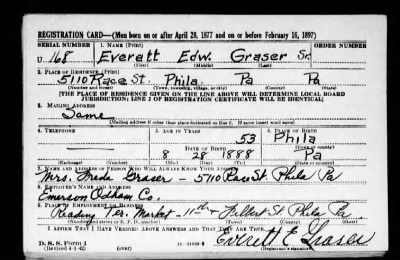 REGISTRATION CARD—(Men born on or after April 28, 1877 and on or before February 16, 1897)
SERIAL NUMBER 1. NAME (Print) ORDER NUMBER
U 168 Everett Edw. Graser Sr.
(First) (Middle) (Last)
2. PLACE OF RESIDENCE (Print)
5710 Race St. Phila. Pa Pa
(Number and street) (Town, township, village, or city) (County) (State)
[THE PLACE OF RESIDENCE GIVEN ON THE LINE ABOVE WILL DETERMINE LOCAL BOARD
JURISDICTION; LINE 2 OF REGISTRATION CERTIFICATE WILL BE IDENTICAL]
3. MAILING ADDRESS
Same
[Mailing address if other than place indicated on line 2. If same insert word same]
4. TELEPHONE 5. AGE IN YEARS 6. PLACE OF BIRTH
53 Phila
DATE OF BIRTH (Town or county)
8 28 1888 Pa
(Exchange) (Number) (Mo.) (Day) (Yr.) (State or country)
7. NAME AND ADDRESS OF PERSON WHO WILL ALWAYS KNOW YOUR ADDRESS
Mrs. Freda Graser - 5710 Race St. Phila Pa
8. EMPLOYER'S NAME AND ADDRESS
Emerson Odham Co.
9. PLACE OF EMPLOYMENT OR BUSINESS
Reading Ter. Market - 11th + Filbert St Phila Pa.
(Number and street or R. F. D. number) (Town) (County) (State)
I AFFIRM THAT I HAVE VERIFIED ABOVE ANSWERS AND THAT THEY ARE TRUE.
D. S. S. Form 1
(Revised 4-1-42) (over)
Everett E Graser